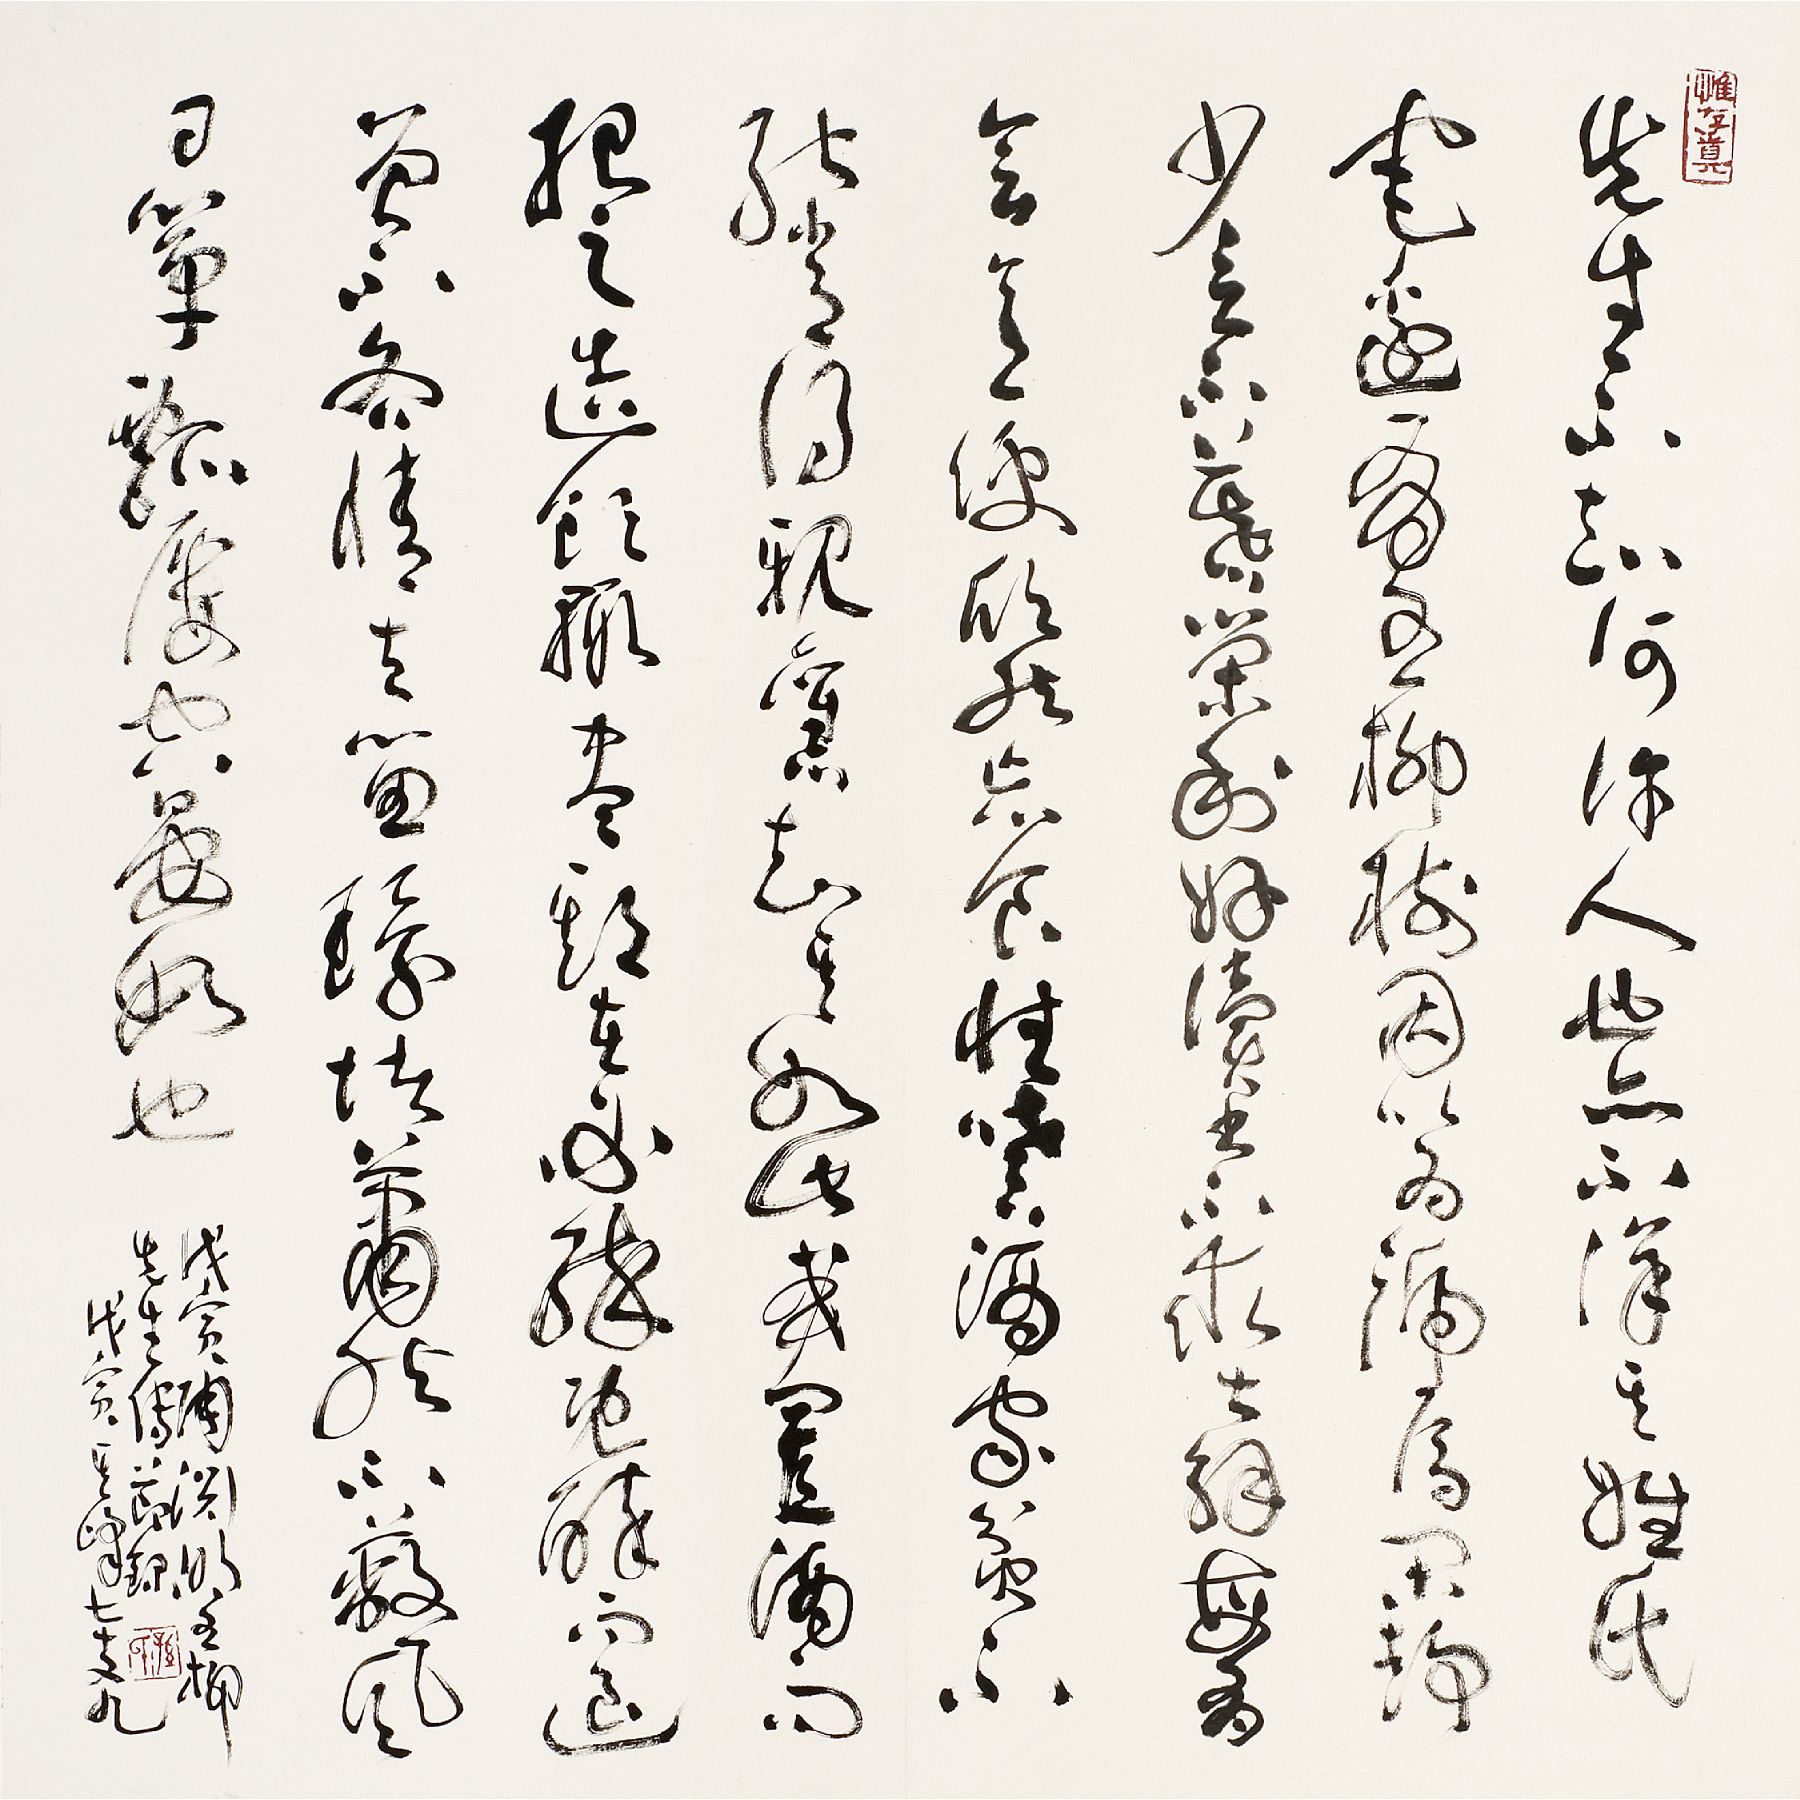 惟存真
先生不知何許人也亦不詳其姓氏
宅邊有五柳樹因以為號焉閑靜
少言不慕榮利好讀書不求甚解每有
會意便欣然忘食性嗜酒家貧不
能常得親舊知其如此或置酒而
招之造飲輒盡期在必醉既醉而退
曾不吝情去留環堵蕭然不蔽風
日簞瓢屢空晏如也
戊寅陶淵明五柳
先生傳節錄
戊寅其峰七十又九